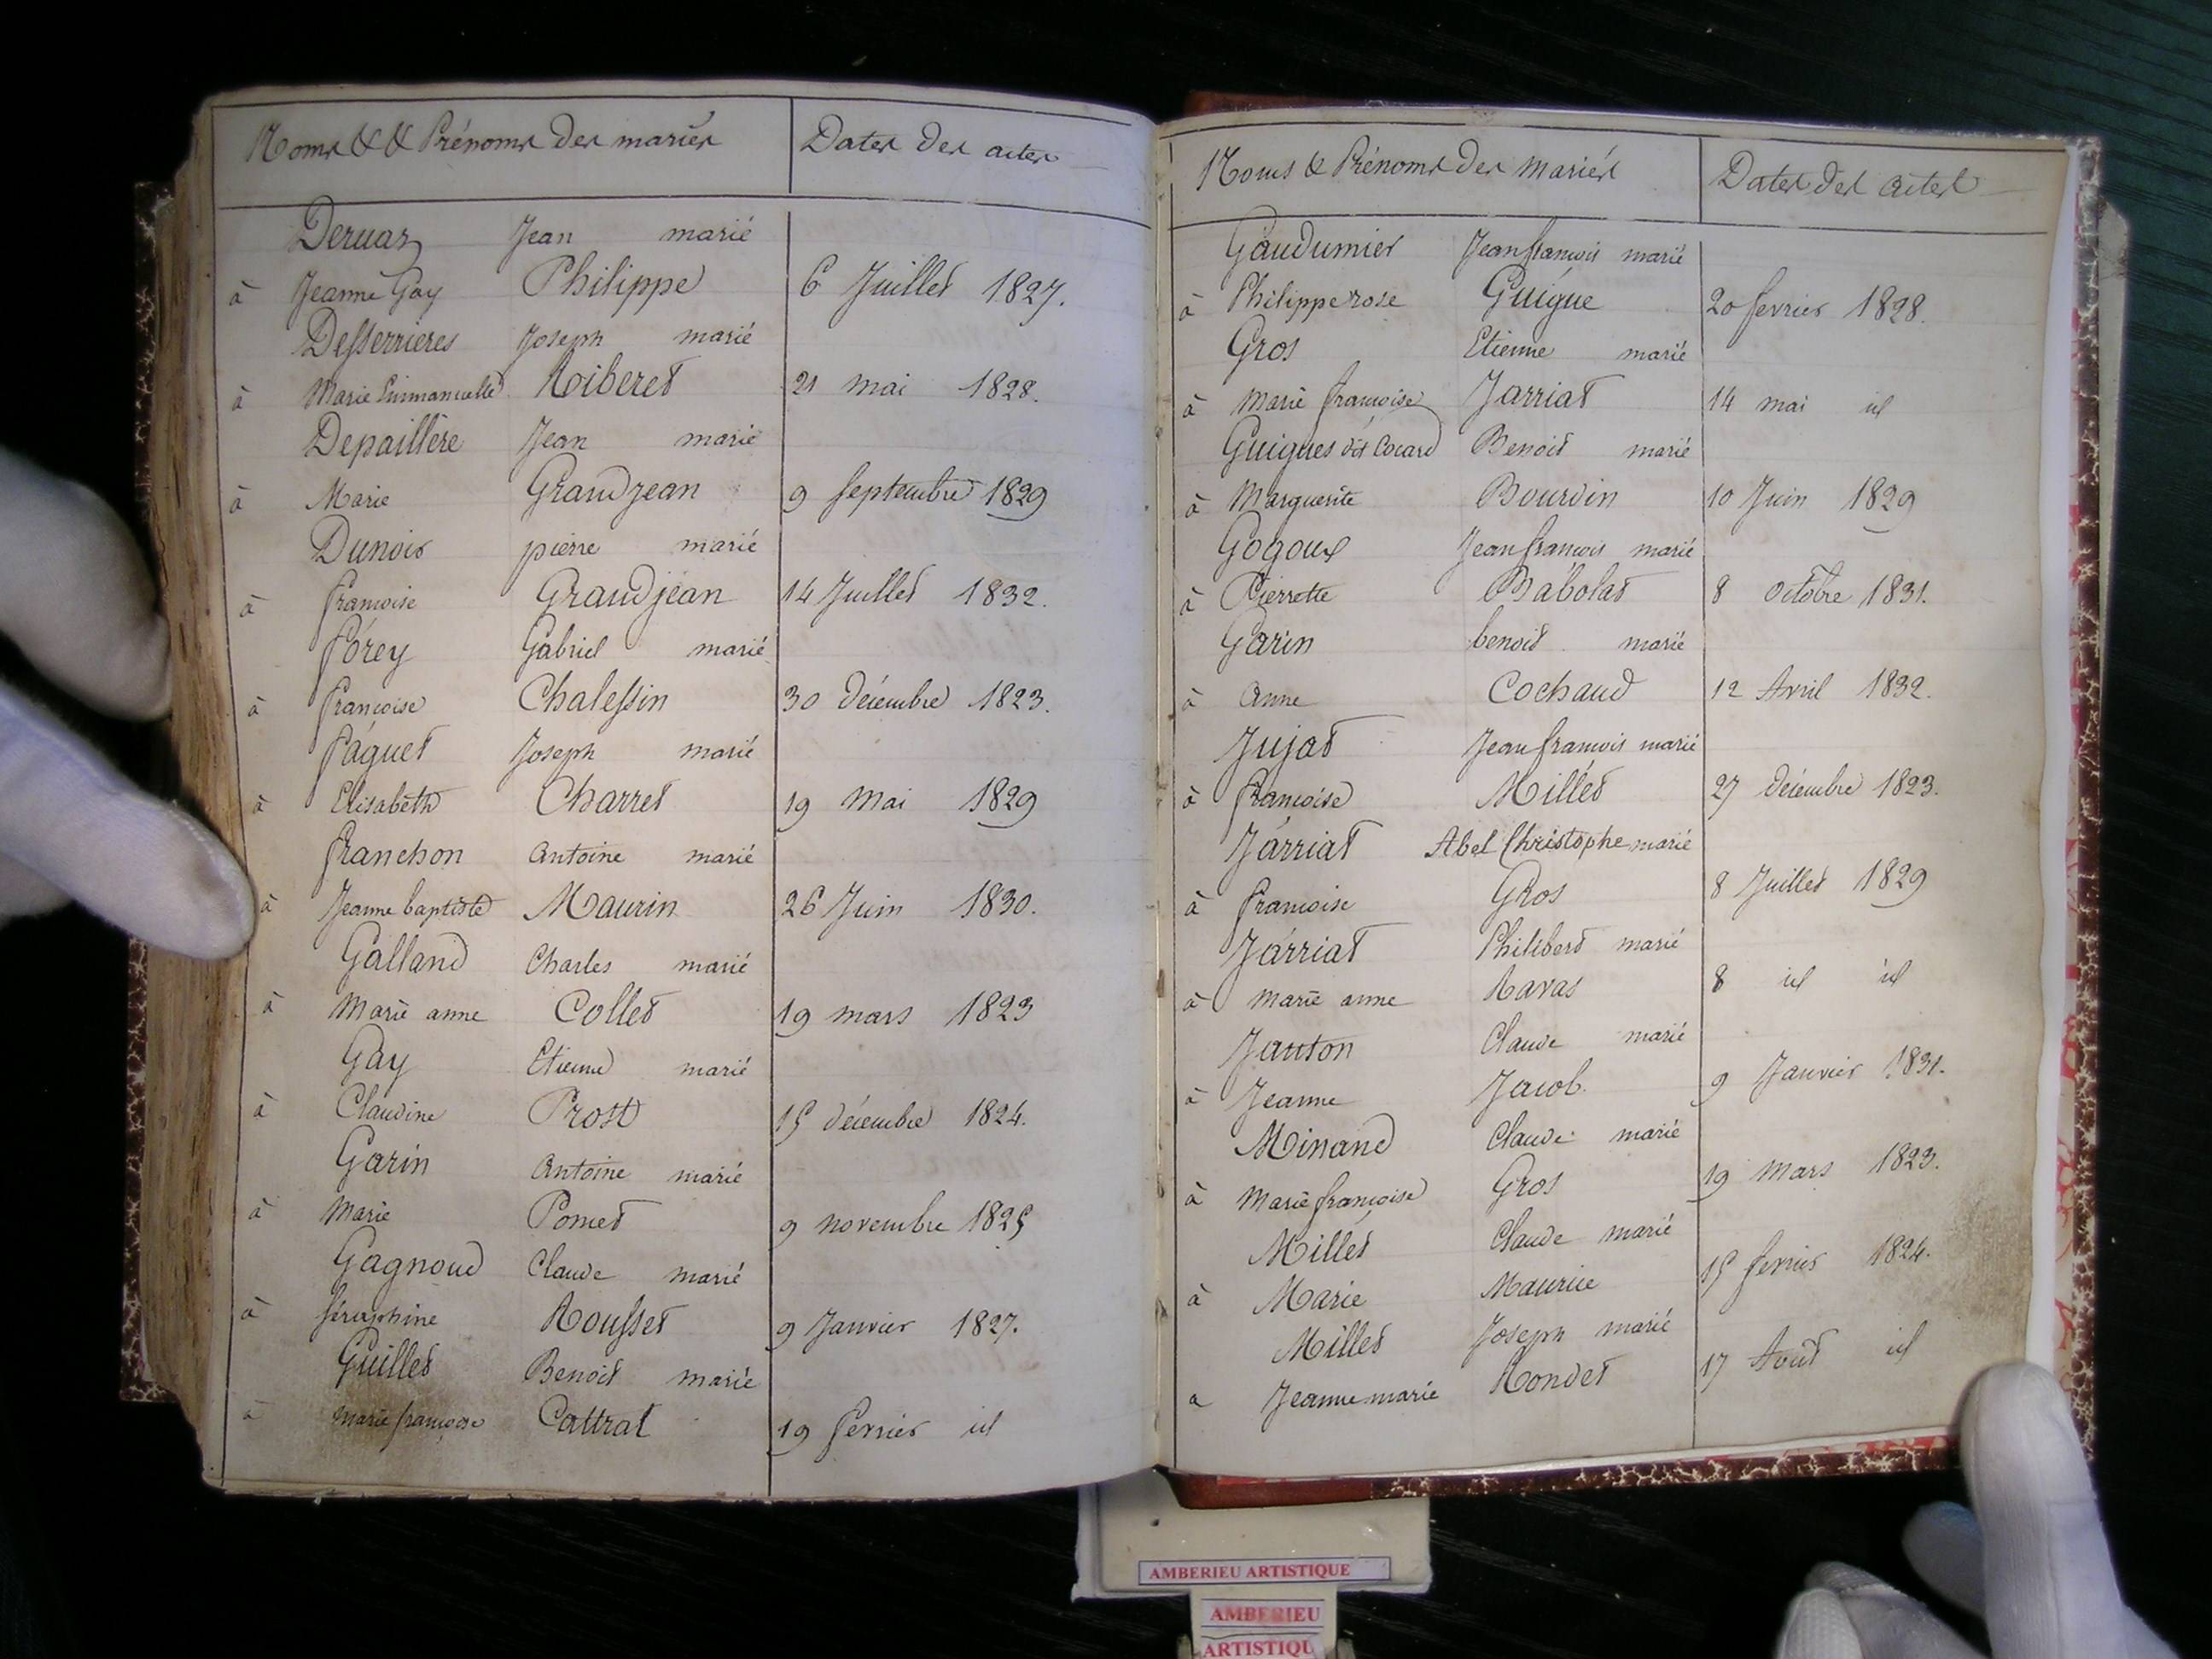 Noms & & Prénoms des mariés Dates des actes
Deruaz Jean marié
à Jeanne Gay Philippe 6 Juillet 1827.
Desserrieres Joseph marié
à Marie Emmanuelle Riberet 21 mai 1828.
Depaillère Jean marié
à Marie Grandjean 9 septembre 1829
Dunois pierre marié
à françoise Grandjean 14 Juillet 1832.
forey Gabriel marié
à françoise Chalessin 30 décembre 1823.
faguet Joseph marié
à Elisabeth Charret 19 mai 1829
franchon antoine marié
à Jeanne baptiste Maurin 26 Juin 1830.
Galland Charles marié
à Marie anne Collet 19 mars 1823
Gay Etienne marié
à Claudine Prost 15 décembre 1824.
Garin antoine marié
à Marie Pomet 9 novembre 1825
Gagnoud Claude marié
à séraphine Rousset 9 Janvier 1827.
Guillet Benoit marié
à marie françoise Cattrat 19 fevrier id
Noms & Prénoms des mariés Dates des actes
Gaudumier Jean françois marié
à Philippe rose Guigue 20 fevrier 1828.
Gros Etienne marié
à Marie françoise Jarriat 14 mai id
Guigues dit Cocard Benoit marié
à Marguerite Bourdin 10 Juin 1829
Gogoux Jean françois marié
à Pierrette Babolat 8 octobre 1831.
Garin benoit marié
à anne Cochaud 12 Avril 1832.
Jujat Jean françois marié
à françoise Millet 27 décembre 1823.
Jarriat Abel Christophe marié
à françoise Gros 8 Juillet 1829
Jarriat Philibert marié
à marie anne Ravas 8 id id
Janton Claude marié
à Jeanne Jacob. 9 Janvier 1831.
Minand Claude marié
à Marie françoise Gros 19 mars 1823.
Millet Claude marié
à Marie Maurice 15 fevrier 1824.
Millet Joseph marié
a Jeanne marie Rondet 17 Aout id
AMBERIEU ARTISTIQUE
AMBERIEU
ARTISTIQU